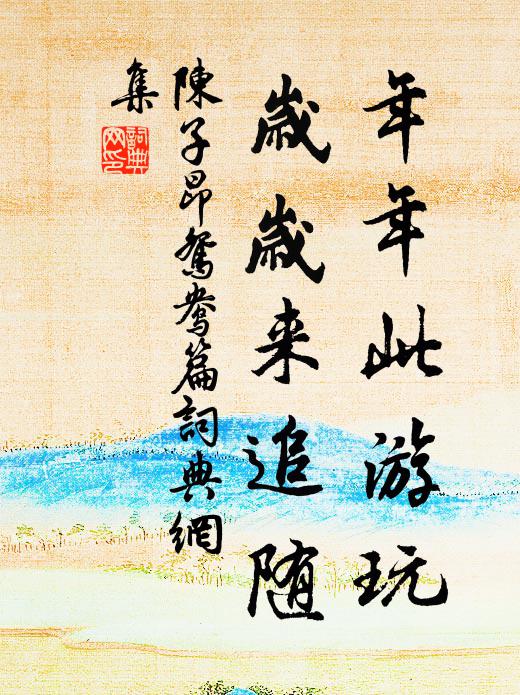 年年此游玩
歲歲来追随
陳子昂鴛鴦篇詞典網
集
詞典网印